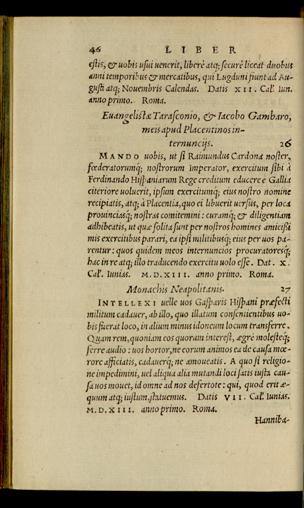 46 LIBER
estis, & uobis usui uenerit, liberè atq; securè liceat duobus
anni temporibus & mercatibus, qui Lugduni fiunt ad Au-
gusti atq; Nouembris Calendas. Datis XII. Cal. Iun.
anno primo. Roma.
Euangelistæ Tarasconio, & Iacobo Gambaro,
meis apud Placentinos in-
ternuncijs. 26
MANDO uobis, ut si Raimundus Cardona noster,
fœderatorumq; nostrorum Imperator, exercitum sibi à
Ferdinando Hispaniarum Rege creditum educere è Gallia
citeriore uoluerit, ipsum exercitumq; eius nostro nomine
recipiatis, atq; à Placentia, quo ei libuerit uersus, per loca
prouinciasq; nostras comitemini: curamq; & diligentiam
adhibeatis, ut quæ solita sunt per nostros homines amicissi
mis exercitibus parari, ea ipsi militibusq; eius per uos pa-
rentur: quos quidem meos internuncios procuratoresq;
hac in re atq; illo traducendo exercitu uolo esse. Dat. X.
Cal. Iunias. M.D.XIII. anno primo. Roma.
Monachis Neapolitanis. 27
INTELLEXI uelle uos Gasparis Hispani præfecti
militum cadauer, ab illo, quo illatum consentientibus uo-
bis fuerat loco, in alium minus idoneum locum transferre.
Quam rem, quoniam eos quorum interest, ægrè molesteq;
ferre audio: uos hortor, ne eorum animos ea de causa mœ-
rore afficiatis, cadauerq; ne amoueatis. A quo si religio-
ne impedimini, uel aliqua alia mutandi loci satis iusta cau-
sa uos mouet, id omne ad nos defertote: qui, quod erit æ-
quum atq; iustum, statuemus. Datis VII. Cal. Iunias.
M.D.XIII. anno primo. Roma.
Hanniba-